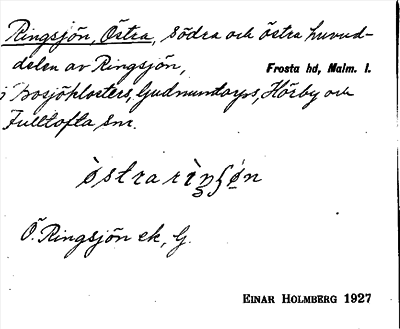 Ringsjön, Östra, södra och östra huvud-
delen av Ringsjön, Frosta hd, Malm. l.
i Bosjöklosters, Gudmundtorps, Hörby och
Fulltofta snr.
östra
Ö. Ringsjön ek, G.
EINAR HOLMBERG 1927